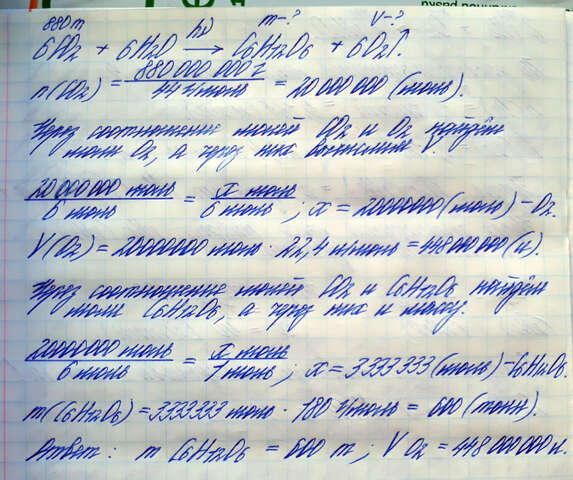 880 т hν m-? V-?
6CO2 + 6H2O → C6H12O6 + 6O2↑.
n(CO2) = 880 000 000 г / 44 г/моль = 20 000 000 (моль).
Через соотношение молей CO2 и O2 найдём
моли O2, а через них вычислим V.
20 000 000 моль / 6 моль = x моль / 6 моль ; x = 20000000 (моль) - O2.
V(O2) = 20000000 моль · 22,4 л/моль = 448 000 000 (л).
Через соотношение молей CO2 и C6H12O6 найдём
моли C6H12O6, а через них и массу.
20000000 моль / 6 моль = x моль / 1 моль ; x = 3333333 (моль) - C6H12O6.
m(C6H12O6) = 3333333 моль · 180 г/моль = 600 (тонн).
Ответ: m C6H12O6 = 600 т ; V O2 = 448 000 000 л.